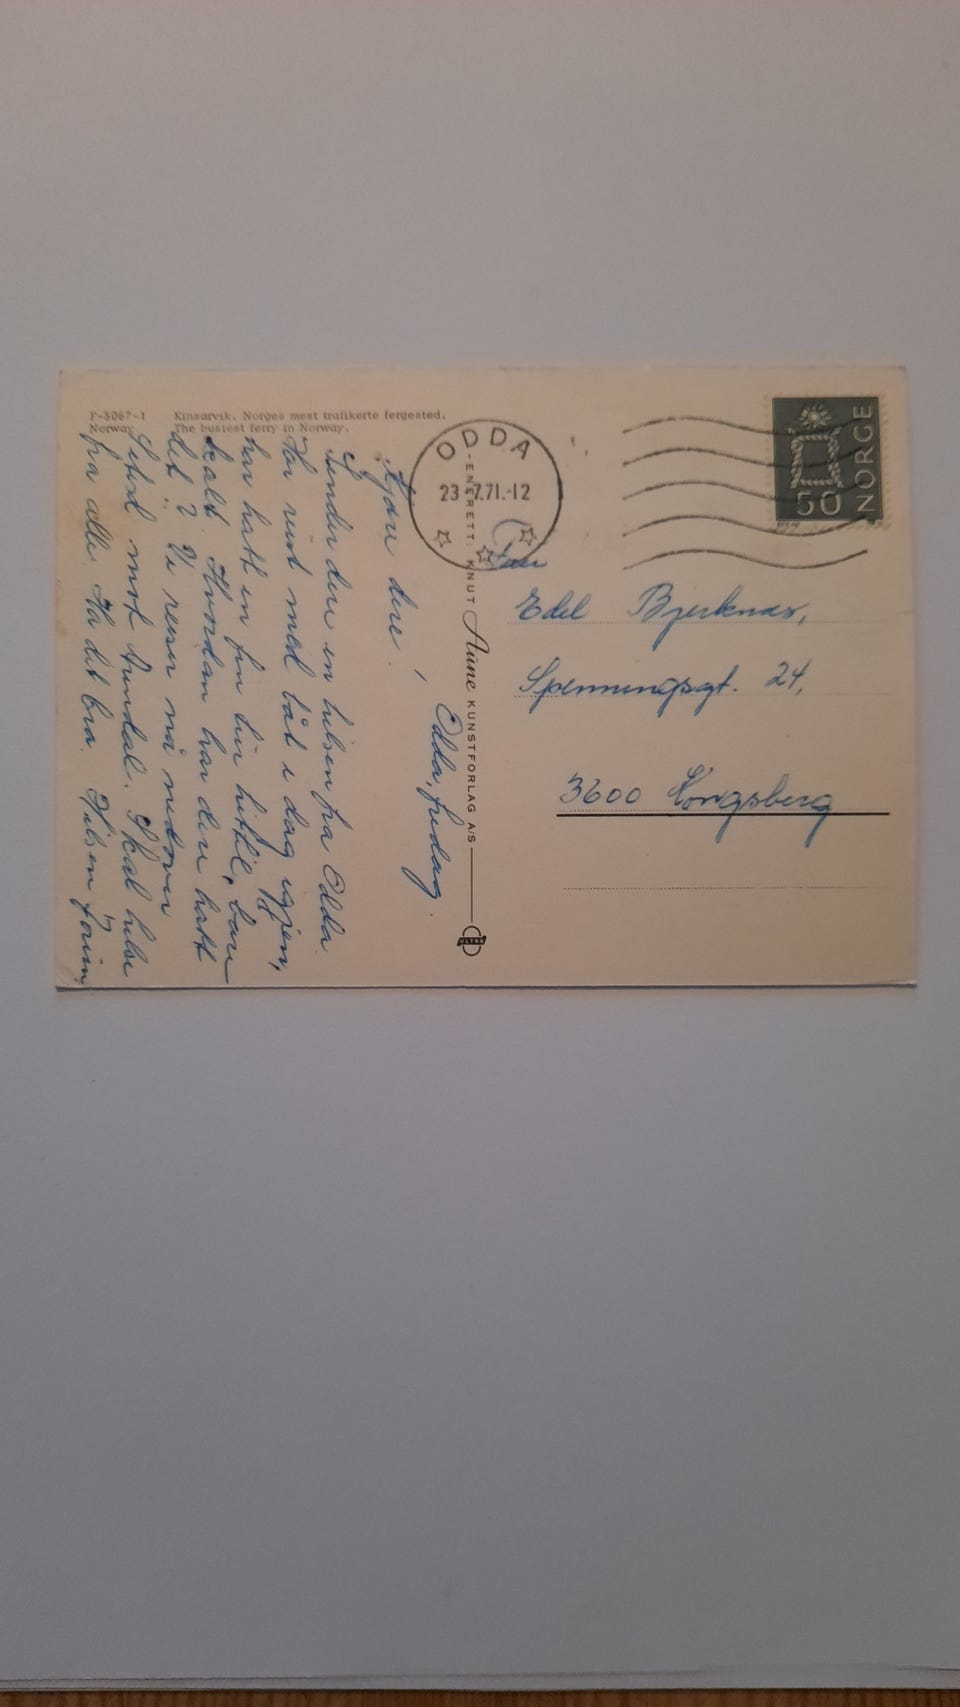 F-5067-1 Kinsarvik. Norges mest trafikerte fergested.
Norway The busiest ferry in Norway.
Odda, fredag.
Kjære dere!
Sender dere en hilsen fra Odda.
Har reist med båt i dag igjen,
har hatt en fin tur hittil, bare
kaldt. Hvordan har dere hatt
det? Vi reiser nå nedover
Setesd. mot Arendal. Skal hilse
fra alle. Ha det bra. Hilsen
ENERETT: KNUT Aune KUNSTFORLAG A/S
ULTRA
ODDA
23.7.71.-12
NORGE
50
Fru
Edel Bjerknæs,
Spenningsgt. 24,
3600 Kongsberg